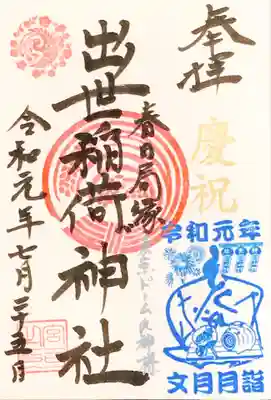 奉拝
慶祝
春日局縁
出世稲荷神社
令和元年七月二十五日
令和元年
文月月詣